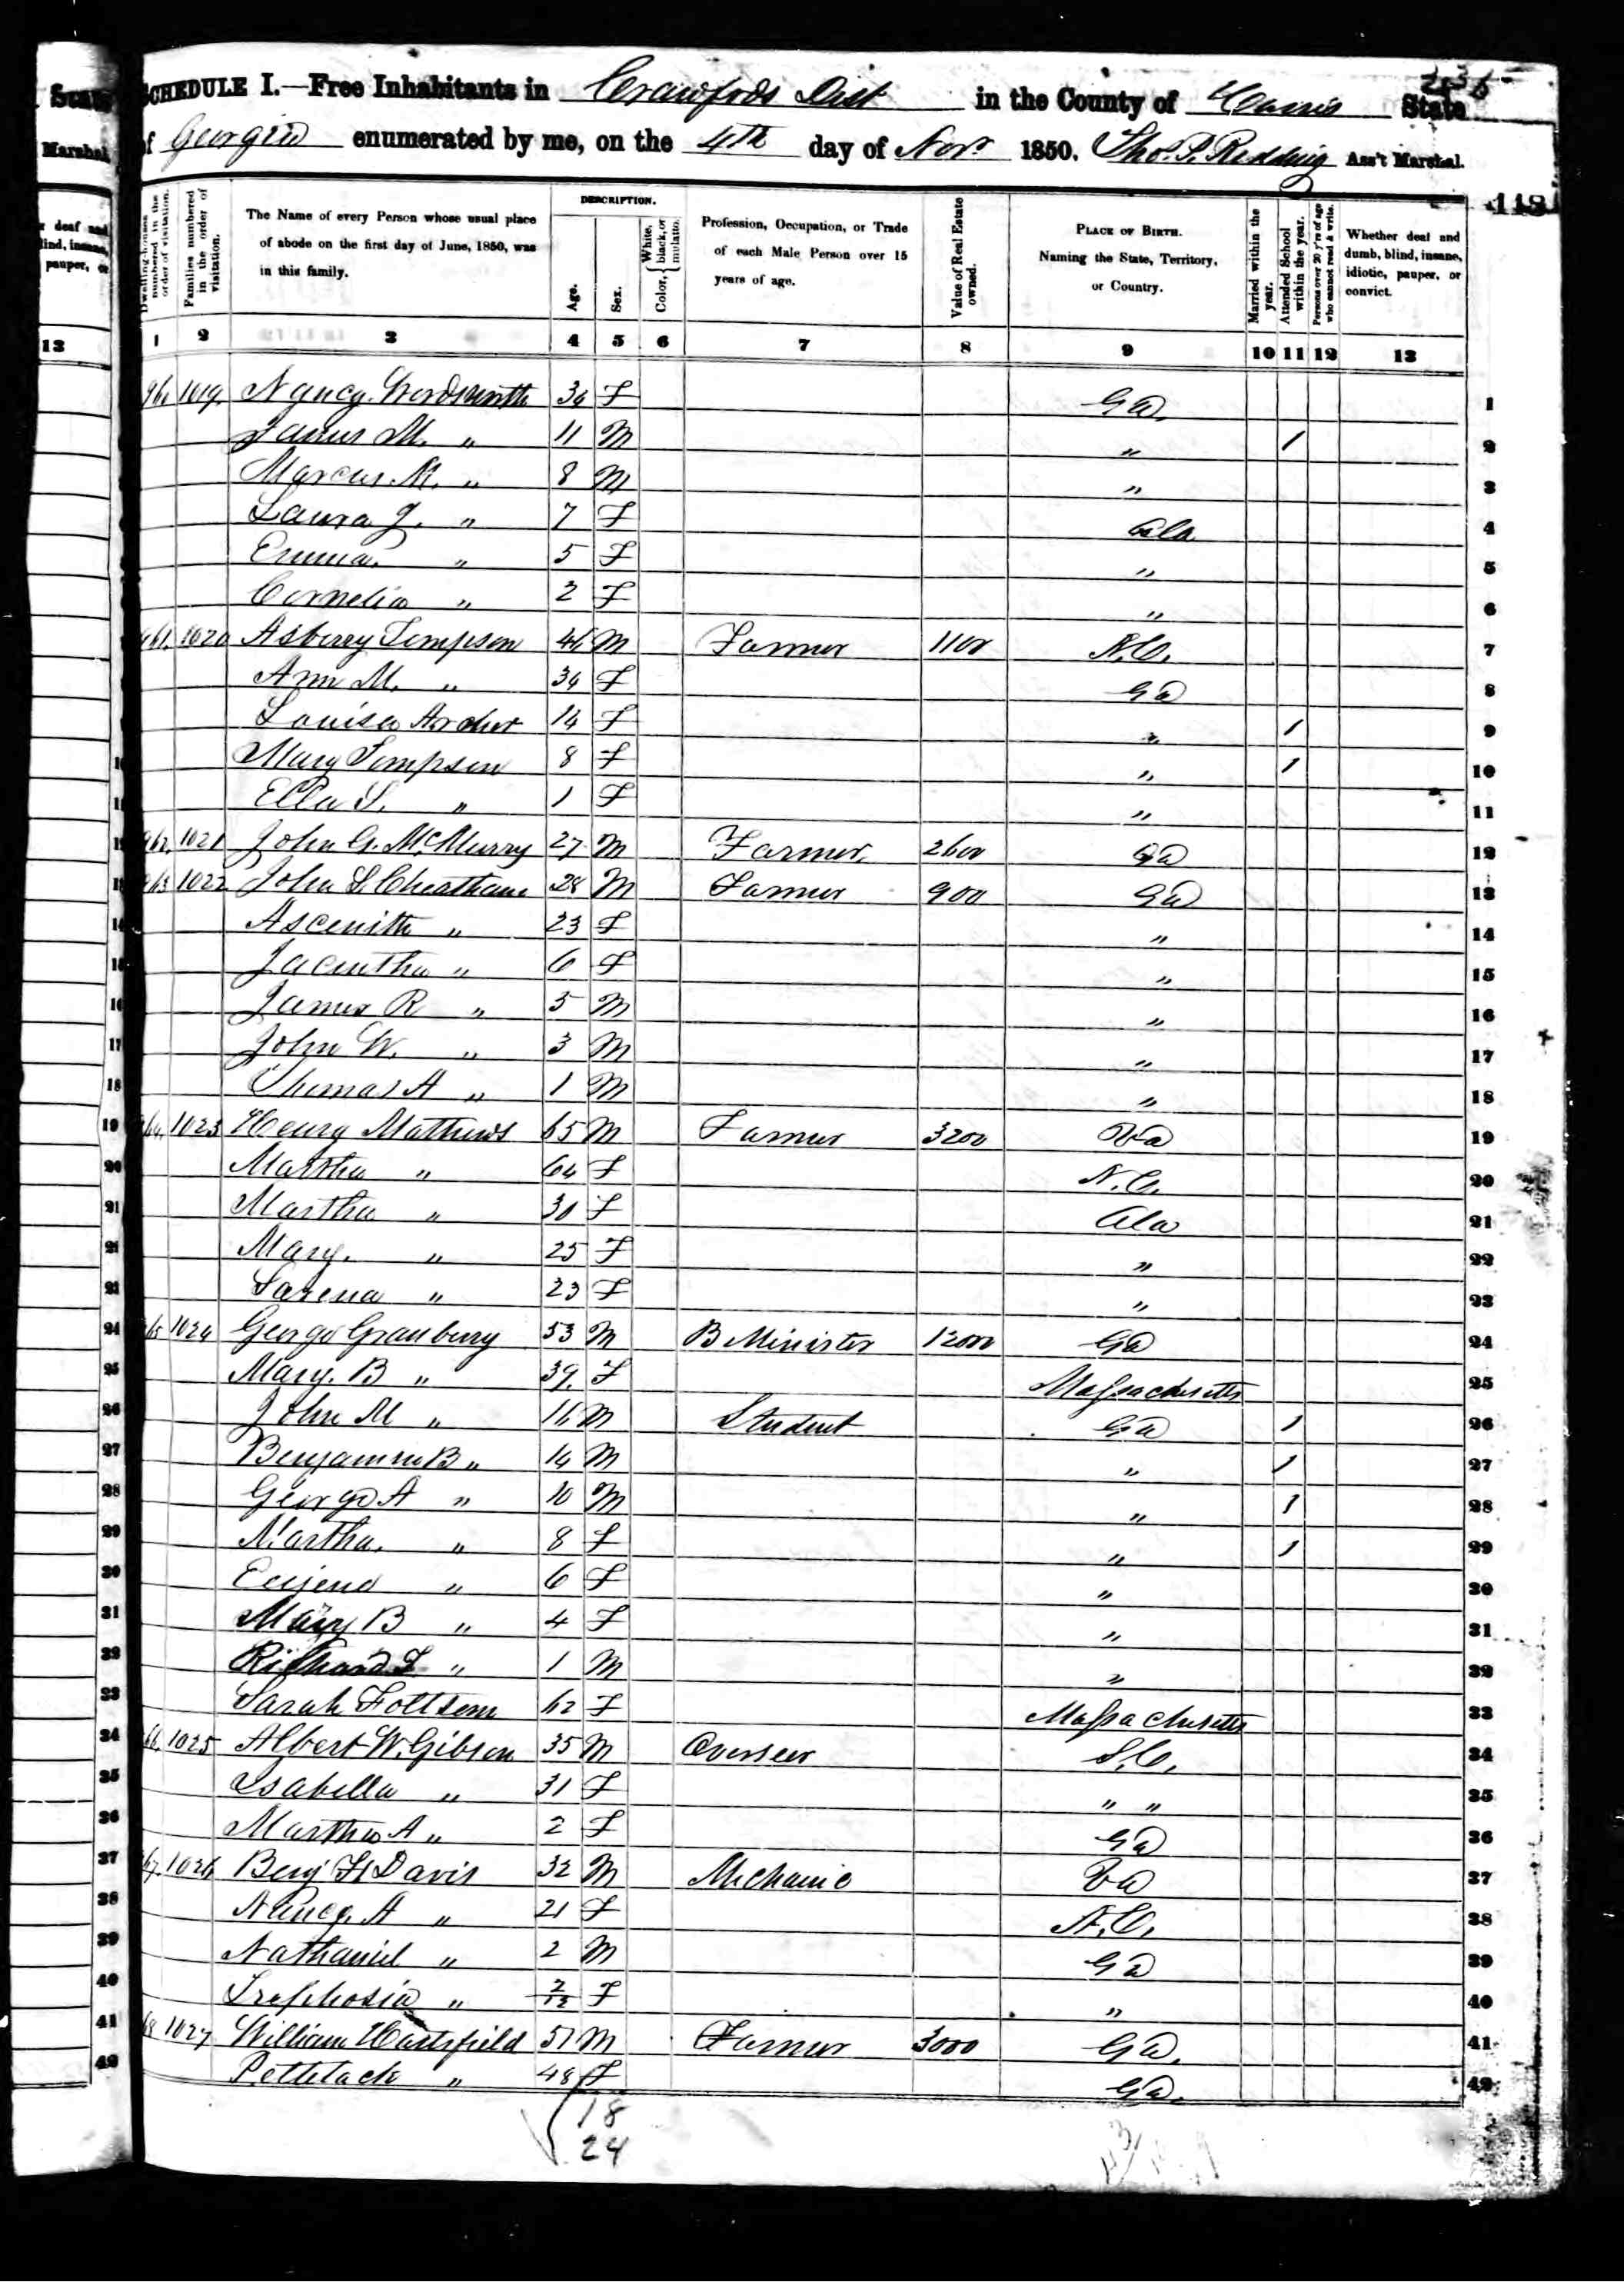 235
SCHEDULE I.—Free Inhabitants in Crawfords Dist in the County of Harris State
of Georgia enumerated by me, on the 4th day of Novr 1850. Thos. P. Redding Ass't Marshal.
118
Dwelling-houses numbered in the order of visitation.
Families numbered in the order of visitation.
The Name of every Person whose usual place of abode on the first day of June, 1850, was in this family.
DESCRIPTION.
Age.
Sex.
Color, { White, black, or mulatto.
Profession, Occupation, or Trade of each Male Person over 15 years of age.
Value of Real Estate owned.
PLACE OF BIRTH. Naming the State, Territory, or Country.
Married within the year.
Attended School within the year.
Persons over 20 y'rs of age who cannot read & write.
Whether deaf and dumb, blind, insane, idiotic, pauper, or convict.
1 2 3 4 5 6 7 8 9 10 11 12 13
960 1019 Nancy Wordsworth 34 F Ga. 1
James M. " 11 M " 1 2
Marcus M. " 8 M " 3
Laura J. " 7 F Ala 4
Emma. " 5 F " 5
Cornelia " 2 F " 6
961. 1020 Asberry Simpson 46 M Farmer 1100 N.C. 7
Ann M. " 34 F Ga 8
Louisa Archer 14 F " 1 9
10 Mary Simpson 8 F " 1 10
11 Ella S. " 1 F " 11
12 962. 1021 John G. McMurry 27 M Farmer 2600 Ga 12
13 963 1022 John S. Cheatham 28 M Farmer 900 Ga 13
14 Ascenith " 23 F " 14
15 Jacintha " 6 F " 15
16 James R " 5 M " 16
17 John W. " 3 M " 17
18 Thomas A " 1 M " 18
19 64. 1023 Henry Mathews 65 M Farmer 3200 Va 19
20 Martha " 64 F N.C. 20
21 Martha " 30 F Ala 21
Mary. " 25 F " 22
Sarena " 23 F " 23
24 65 1024 George Granberry 53 M B Minister 12000 Ga 24
25 Mary. B " 39. F Massachusetts 25
26 John M " 16 M Student Ga 1 26
27 Benjamin B " 14 M " 1 27
28 George A " 10 M " 1 28
29 Martha. " 8 F " 1 29
30 Eujena " 6 F " 30
31 Mary B " 4 F " 31
32 Richard S " 1 M " 32
33 Sarah 62 F Massachusetts 33
34 66. 1025 Albert W. Gibson 35 M Overseer S.C. 34
35 Isabella " 31 F " " 35
36 Martha A " 2 F Ga 36
37 67. 1026 Benj H Davis 32 M Mechanic Va 37
38 Nancy. A " 21 F N.C. 38
39 Nathaniel " 2 M Ga 39
40 " 2/12 F " 40
41 68 1027 William Hartsfield 51 M Farmer 3000 Ga. 41
42 " 48 F Ga. 42
18
24